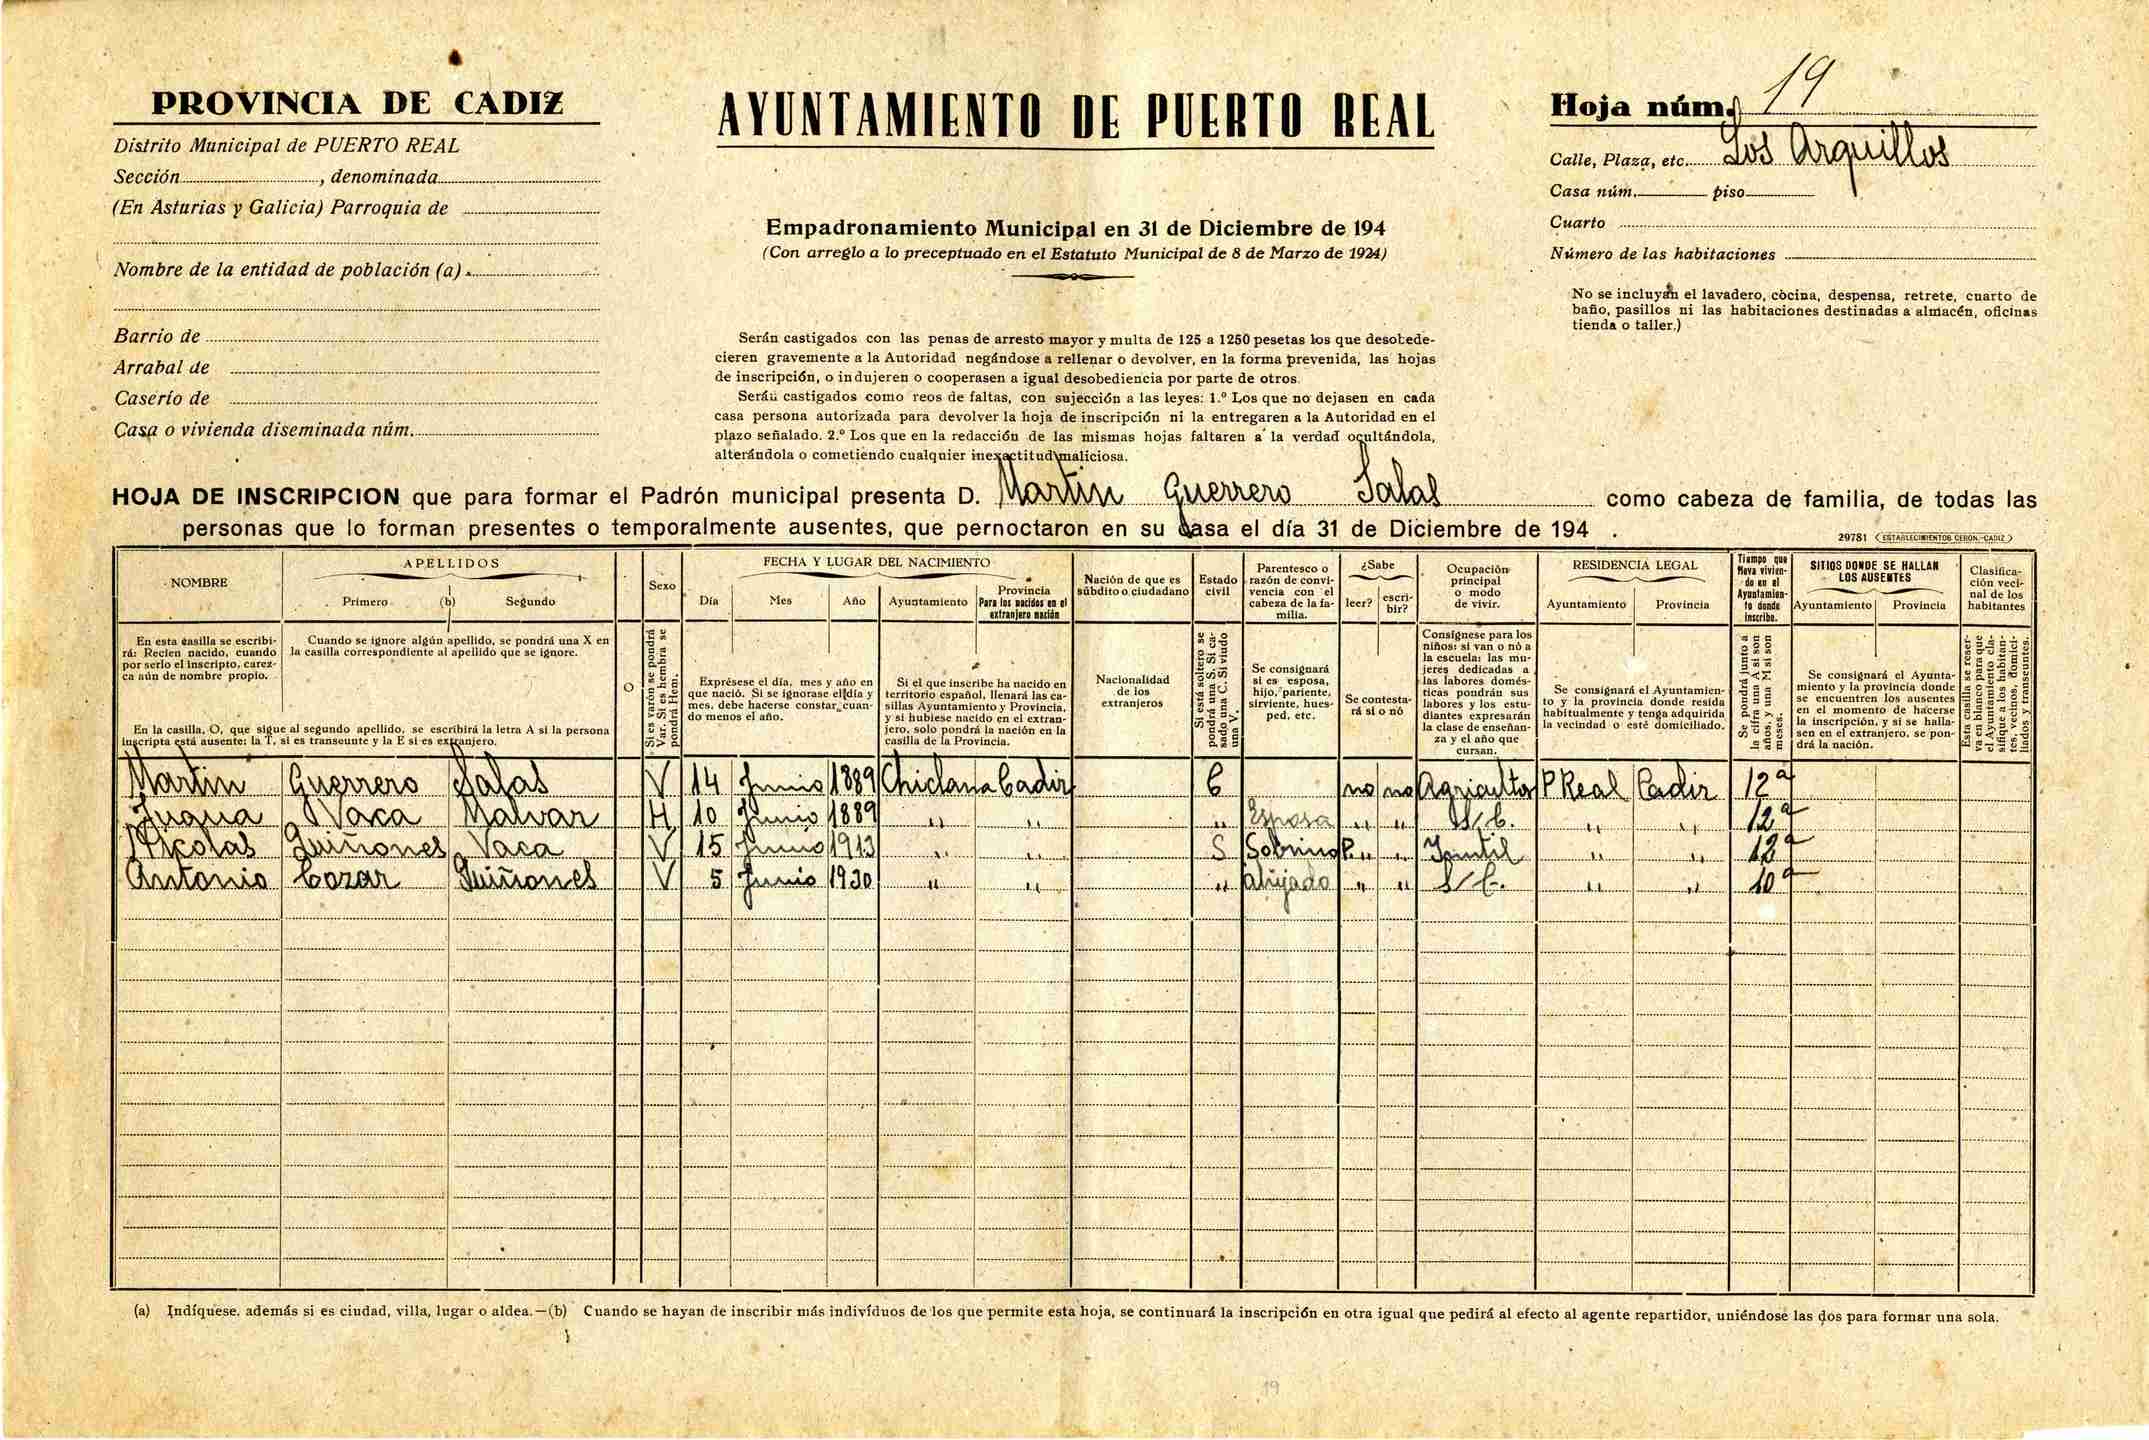 PROVINCIA DE CADIZ
Distrito Municipal de PUERTO REAL
Sección , denominada
(En Asturias y Galicia) Parroquia de
Nombre de la entidad de población (a)
Barrio de
Arrabal de
Caserío de
Casa o vivienda diseminada núm.
AYUNTAMIENTO DE PUERTO REAL
Empadronamiento Municipal en 31 de Diciembre de 194
(Con arreglo a lo preceptuado en el Estatuto Municipal de 8 de Marzo de 1924)
Serán castigados con las penas de arresto mayor y multa de 125 a 1250 pesetas los que desobede-
cieren gravemente a la Autoridad negándose a rellenar o devolver, en la forma prevenida, las hojas
de inscripción, o indujeren o cooperasen a igual desobediencia por parte de otros.
Serán castigados como reos de faltas, con sujección a las leyes: 1.º Los que no dejasen en cada
casa persona autorizada para devolver la hoja de inscripción ni la entregaren a la Autoridad en el
plazo señalado. 2.º Los que en la redacción de las mismas hojas faltaren a la verdad ocultándola,
alterándola o cometiendo cualquier inexactitud maliciosa.
Hoja núm. 19
Calle, Plaza, etc. Los Arquillos
Casa núm. piso
Cuarto
Número de las habitaciones
No se incluyan el lavadero, còcina, despensa, retrete, cuarto de
baño, pasillos ni las habitaciones destinadas a almacén, oficinas
tienda o taller.)
HOJA DE INSCRIPCION que para formar el Padrón municipal presenta D. Martin Guerrero Salas como cabeza de familia, de todas las
personas que lo forman presentes o temporalmente ausentes, que pernoctaron en su casa el día 31 de Diciembre de 194 .
29781 ESTABLECIMIENTOS CERON.-CADIZ
NOMBRE
APELLIDOS
Primero (b) Segundo
Sexo
FECHA Y LUGAR DEL NACIMIENTO
Día Mes Año Ayuntamiento
Provincia
Para los nacidos en el
extranjero nación
Nación de que es
súbdito o ciudadano
Estado
civil
Parentesco o
razón de convi-
vencia con el
cabeza de la fa-
milia.
¿Sabe
leer? escri-
bir?
Ocupación
principal
o modo
de vivir.
RESIDENCIA LEGAL
Ayuntamiento Provincia
Tiempo que
lleva vivien-
do en el
Ayuntamien-
to donde
inscribe.
SITIOS DONDE SE HALLAN
LOS AUSENTES
Ayuntamiento Provincia
Clasifica-
ción veci-
nal de los
habitantes
En esta casilla se escribi-
rá: Recien nacido, cuando
por serlo el inscripto, carez-
ca aún de nombre propio.
Cuando se ignore algún apellido, se pondrá una X en
la casilla correspondiente al apellido que se ignore.
En la casilla, O, que sigue al segundo apellido, se escribirá la letra A si la persona
inscripta está ausente; la T, si es transeunte y la E si es extranjero.
O
Si es varón se pondrá
Var. Si es hembra se
pondrá Hem.
Exprésese el día, mes y año en
que nació. Si se ignorase el día y
mes, debe hacerse constar, cuan-
do menos el año.
Si el que inscribe ha nacido en
territorio español, llenará las ca-
sillas Ayuntamiento y Provincia,
y si hubiese nacido en el extran-
jero, solo pondrá la nación en la
casilla de la Provincia.
Nacionalidad
de los
extranjeros
Si está soltero se
pondrá una S. Si ca-
sado una C. Si viudo
una V.
Se consignará
si es esposa,
hijo, pariente,
sirviente, hues-
ped, etc.
Se contesta-
rá si o nó
Consígnese para los
niños: si van o nó a
la escuela: las mu-
jeres dedicadas a
las labores domés-
ticas pondrán sus
labores y los estu-
diantes expresarán
la clase de enseñan-
za y el año que
cursan.
Se consignará el Ayuntamien-
to y la provincia donde resida
habitualmente y tenga adquirida
la vecindad o esté domiciliado.
Se pondrá junto a
la cifra una A si son
años, y una M si son
meses.
Se consignará el Ayunta-
miento y la provincia donde
se encuentren los ausentes
en el momento de hacerse
la inscripción, y si se halla-
sen en el extranjero, se pon-
drá la nación.
Esta casilla se reser-
va en blanco para que
el Ayuntamiento cla-
sifique a los habitan-
tes, vecinos, domici-
liados y transeuntes.
Martin Guerrero Salas V 14 Junio 1889 Chiclana Cadiz C no no Agricultor P Real Cadiz 12 a
Vaca Malvar H 10 Junio 1889 " " " Esposa " " S/C. " " 12 a
Nicolas Quiñones Vaca V 15 Junio 1913 " " S Sobrino P. " " " " 12 a
Antonio Cozar Quiñones V 5 Junio 1930 " " " ahijado " " S/C. " " 10 a
(a) Indíquese, además si es ciudad, villa, lugar o aldea.—(b) Cuando se hayan de inscribir más indivíduos de los que permite esta hoja, se continuará la inscripción en otra igual que pedirá al efecto al agente repartidor, uniéndose las dos para formar una sola.
19